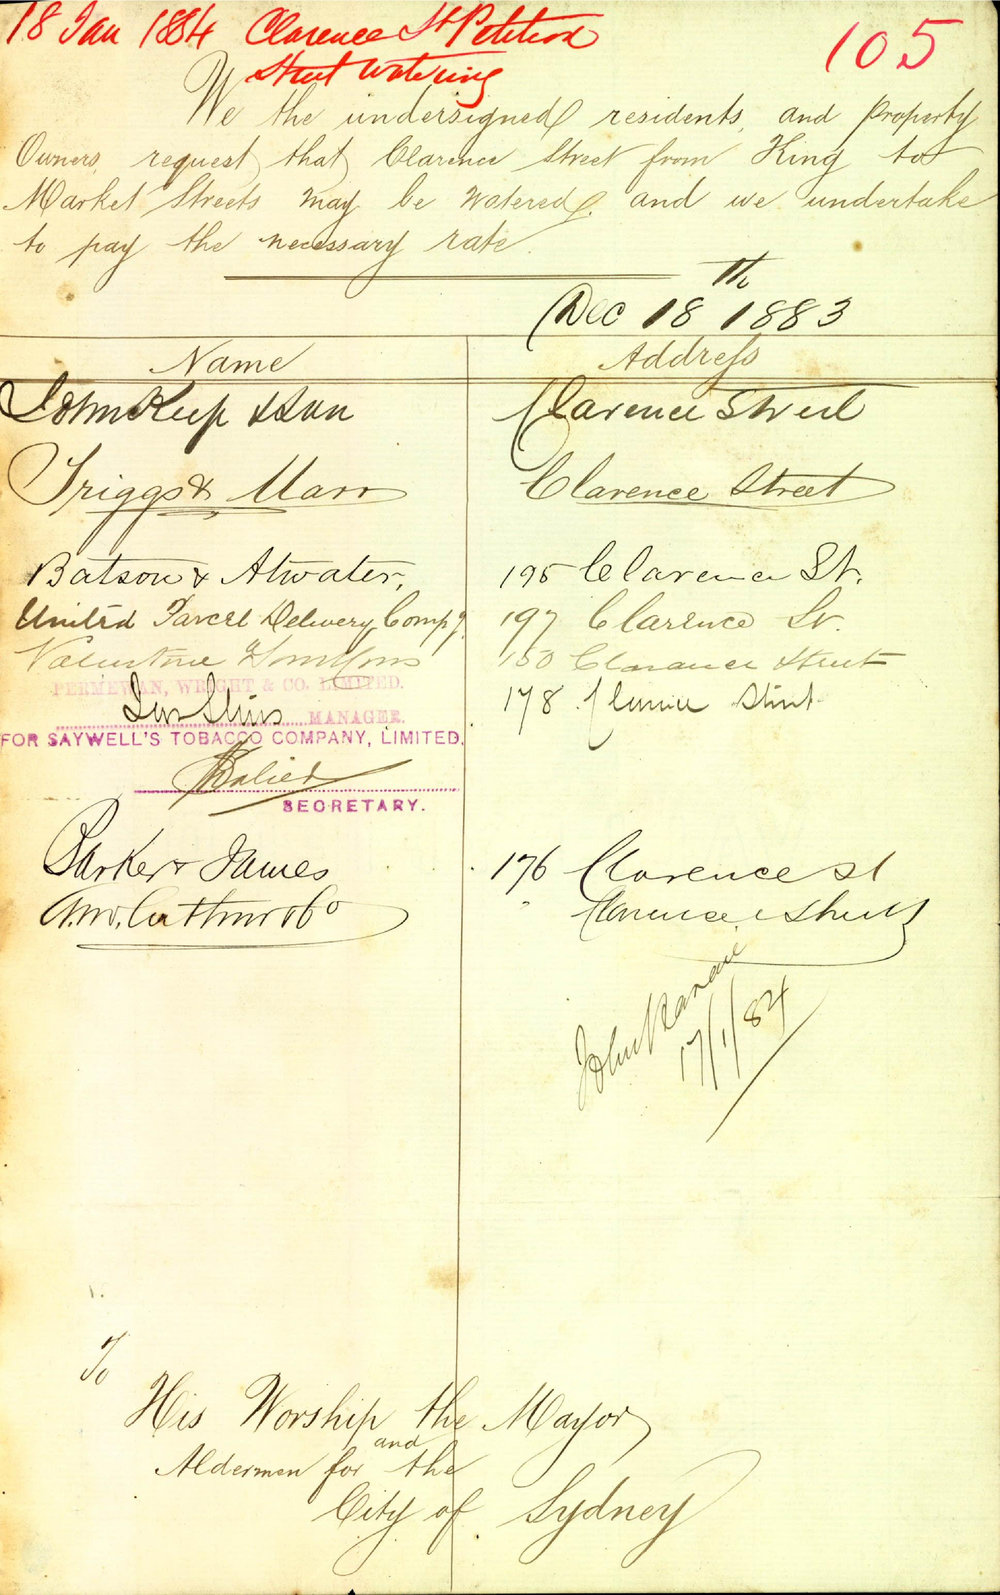 18 Jan 1884 Clarence St Petition
Street Watering
105
We the undersigned residents, and Property
Owners, request that Clarence Street from King to
Market Streets may be watered, and we undertake
to pay the necessary rate.
Dec 18th 1883
Name Address
John Keep & Son Clarence Street
Triggs & Marr Clarence Street
Batson & Atwater, 195 Clarence St.
United Parcel Delivery Compy 197 Clarence St.
Valentine 150 Clarance Street
PERMEWAN, WRIGHT & CO. LIMITED.
178 Clarence Street
MANAGER.
FOR SAYWELL'S TOBACCO COMPANY, LIMITED.
SECRETARY.
Parker & James 176 Clarence St
Clarence Street
John
17/1/84
To
His Worship the Mayor
and
Aldermen for the
City of Sydney